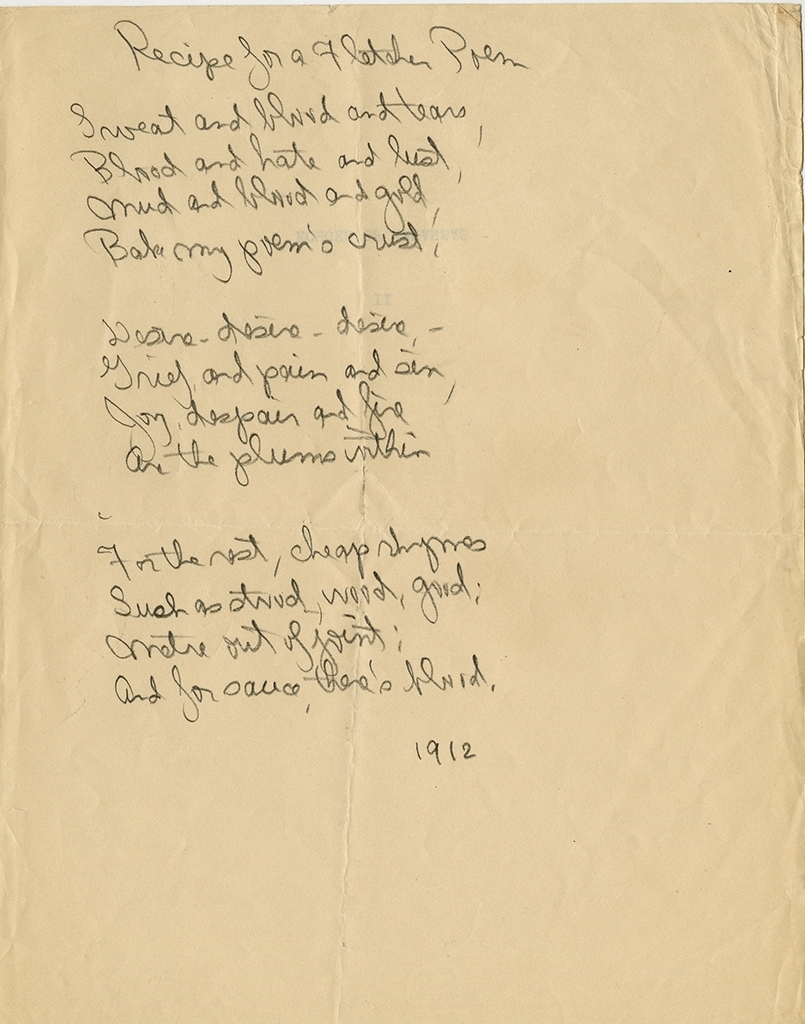 Recipe for a Fletcher Poem
Sweat and blood and tears,
Blood and hate and lust,
Mud and blood and gold,
Bake my poem's crust;
Desire - desire - desire, -
Grief, and pain and sin,
Joy, despair and fire
Are the plums within
For the rest, cheap rhymes
Such as stood, wood, good;
Metre out of joint;
And for sauce, there's blood.
1912